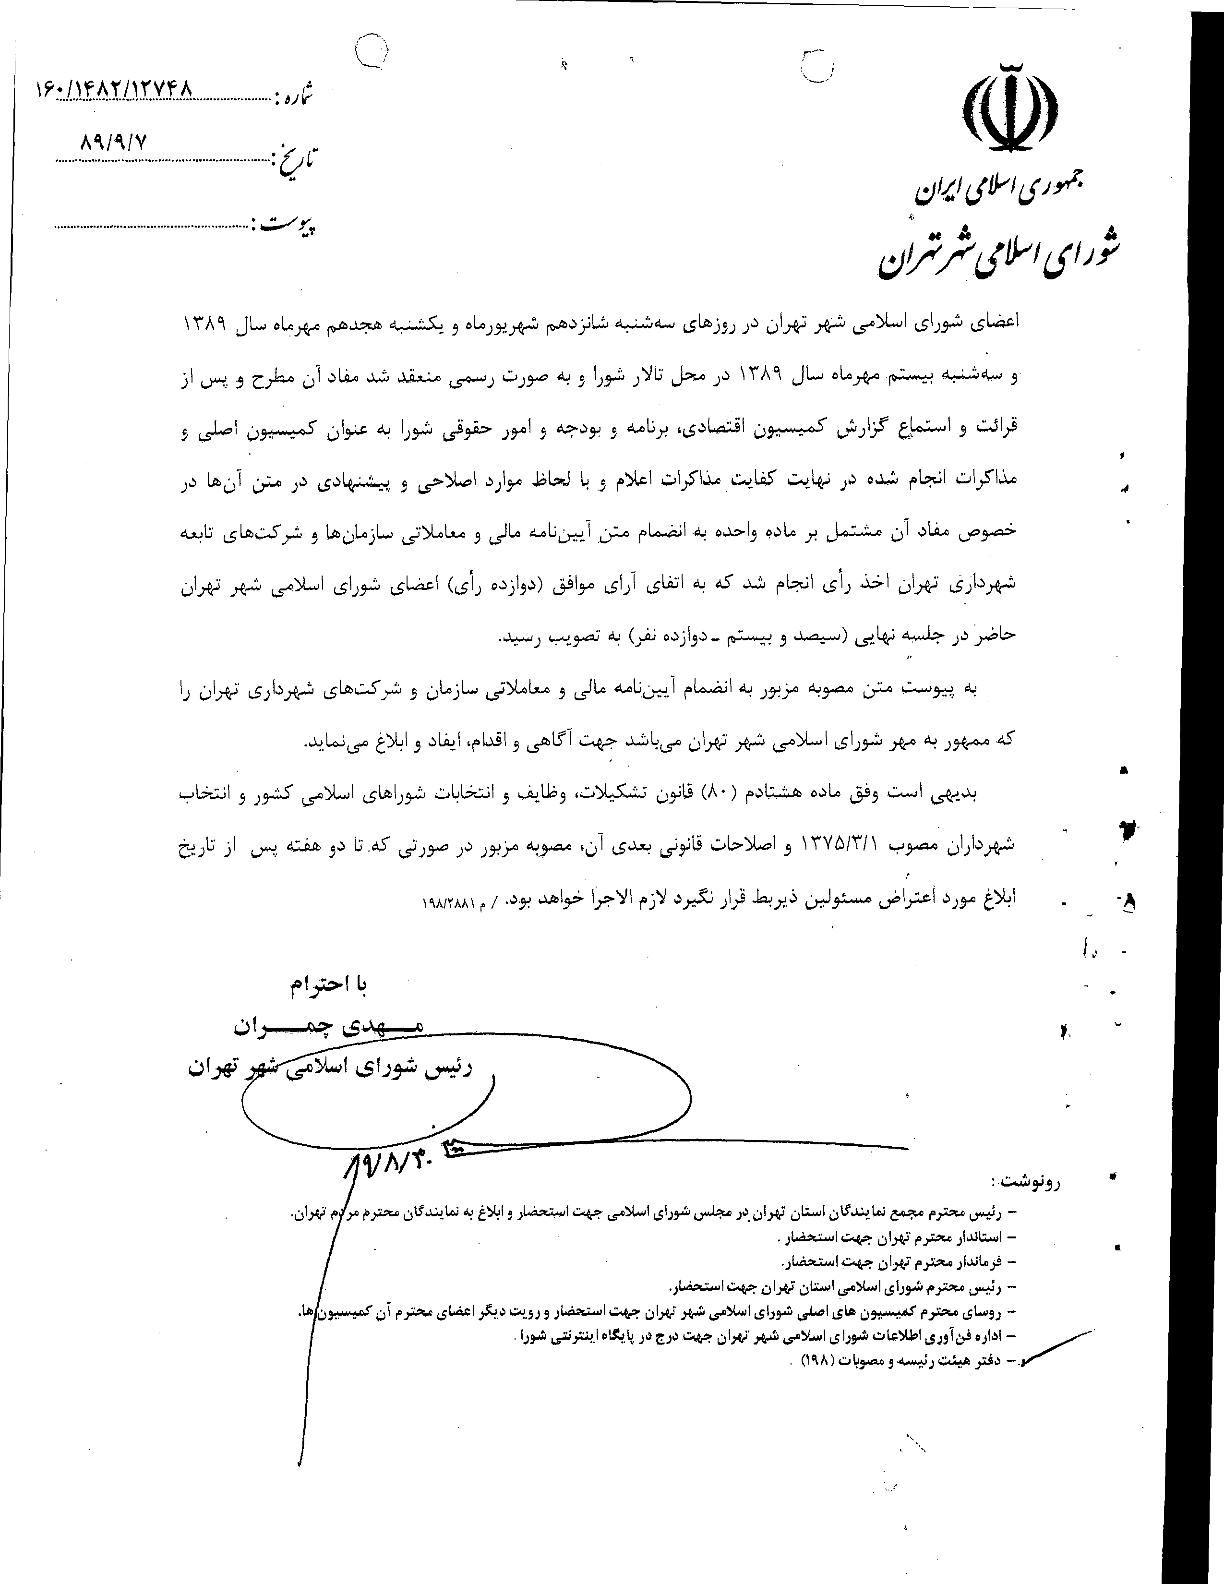 شماره : ۱۶۰/۱۴۸۲/۱۲۷۴۸
تاریخ : ۸۹/۹/۷
پیوست :
جمهوری اسلامی ایران
شورای اسلامی شهر تهران
اعضای شورای اسلامی شهر تهران در روزهای سه‌شنبه شانزدهم شهریورماه و یکشنبه هجدهم مهرماه سال ۱۳۸۹
و سه‌شنبه بیستم مهرماه سال ۱۳۸۹ در محل تالار شورا و به صورت رسمی منعقد شد مفاد آن مطرح و پس از
قرائت و استماع گزارش کمیسیون اقتصادی، برنامه و بودجه و امور حقوقی شورا به عنوان کمیسیون اصلی و
مذاکرات انجام شده در نهایت کفایت مذاکرات اعلام و با لحاظ موارد اصلاحی و پیشنهادی در متن آن‌ها در
خصوص مفاد آن مشتمل بر ماده واحده به انضمام متن آیین‌نامه مالی و معاملاتی سازمان‌ها و شرکت‌های تابعه
شهرداری تهران اخذ رأی انجام شد که به اتفای آرای موافق (دوازده رأی) اعضای شورای اسلامی شهر تهران
حاضر در جلسه نهایی (سیصد و بیستم ـ دوازده نفر) به تصویب رسید.
به پیوست متن مصوبه مزبور به انضمام آیین‌نامه مالی و معاملاتی سازمان و شرکت‌های شهرداری تهران را
که ممهور به مهر شورای اسلامی شهر تهران می‌باشد جهت آگاهی و اقدام، ایفاد و ابلاغ می‌نماید.
بدیهی است وفق ماده هشتادم (۸۰) قانون تشکیلات، وظایف و انتخابات شوراهای اسلامی کشور و انتخاب
شهرداران مصوب ۱۳۷۵/۳/۱ و اصلاحات قانونی بعدی آن، مصوبه مزبور در صورتی که تا دو هفته پس از تاریخ
ابلاغ مورد اعتراض مسئولین ذیربط قرار نگیرد لازم الاجرا خواهد بود. / م ۱۹۸/۲۸۸۱
با احترام
مهدی چمران
رئیس شورای اسلامی شهر تهران
۸۹/۸/۳۰
رونوشت :
– رئیس محترم مجمع نمایندگان استان تهران در مجلس شورای اسلامی جهت استحضار و ابلاغ به نمایندگان محترم مردم تهران.
– استاندار محترم تهران جهت استحضار .
– فرماندار محترم تهران جهت استحضار.
– رئیس محترم شورای اسلامی استان تهران جهت استحضار.
– روسای محترم کمیسیون های اصلی شورای اسلامی شهر تهران جهت استحضار و رویت دیگر اعضای محترم آن کمیسیون‌ها.
– اداره فن‌آوری اطلاعات شورای اسلامی شهر تهران جهت درج در پایگاه اینترنتی شورا .
– دفتر هیئت رئیسه و مصوبات (۱۹۸) .